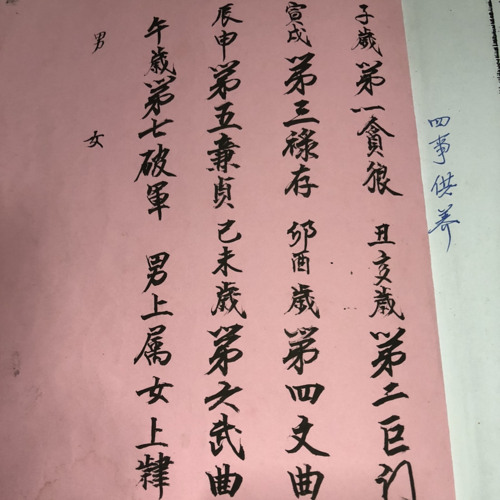 四事供养
子歲第一貪狼 丑亥歲第二巨门
寅戌 第三祿存 卯酉歲第四文曲
辰申第五亷貞 己未歲第六武曲
午歲第七破軍 男上属女上肄
男 女